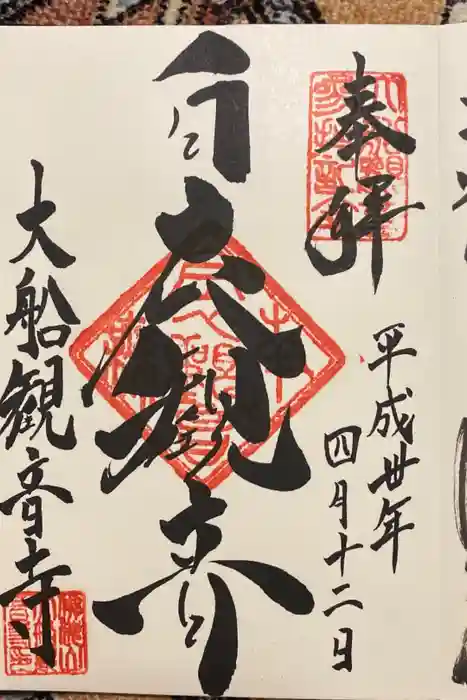 奉拝
平成卅年
四月十二日
白衣観音
大船観音寺